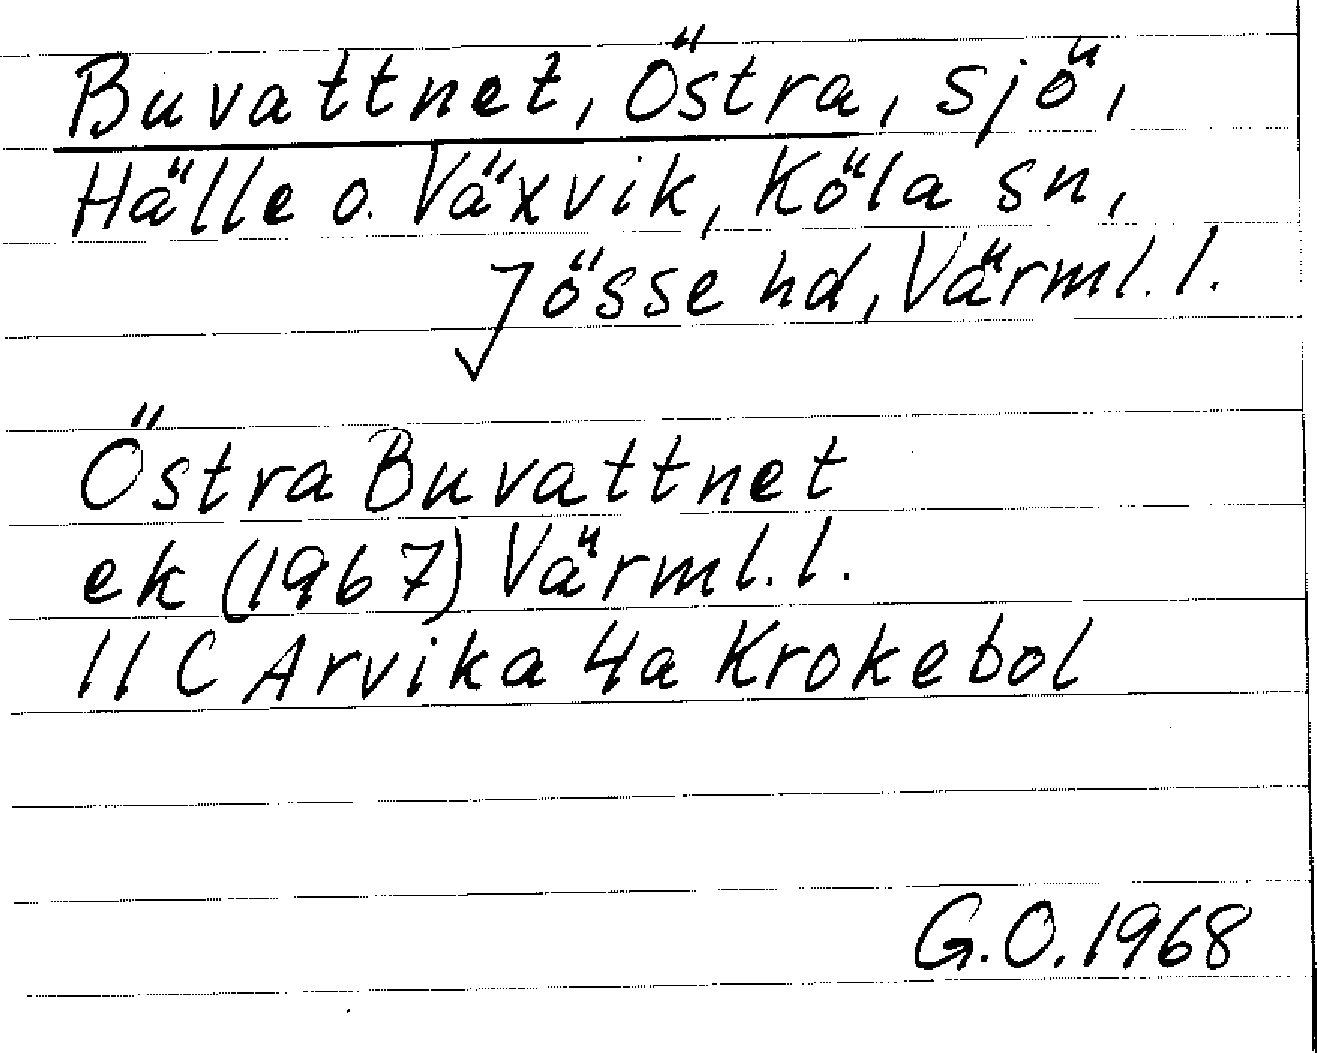 Buvattnet, Östra, sjö,
Hälle o. Växvik, Köla sn,
Jösse hd, Värml. l.
Östra Buvattnet
ek (1967) Värml. l.
11 C Arvika 4a Krokebol
G.O. 1968